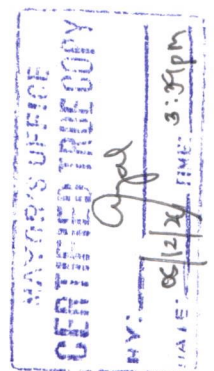 MAYOR'S OFFICE
CERTIFIED TRUE COPY
BY:
DATE: 06/12/26 TIME: 3:51pm